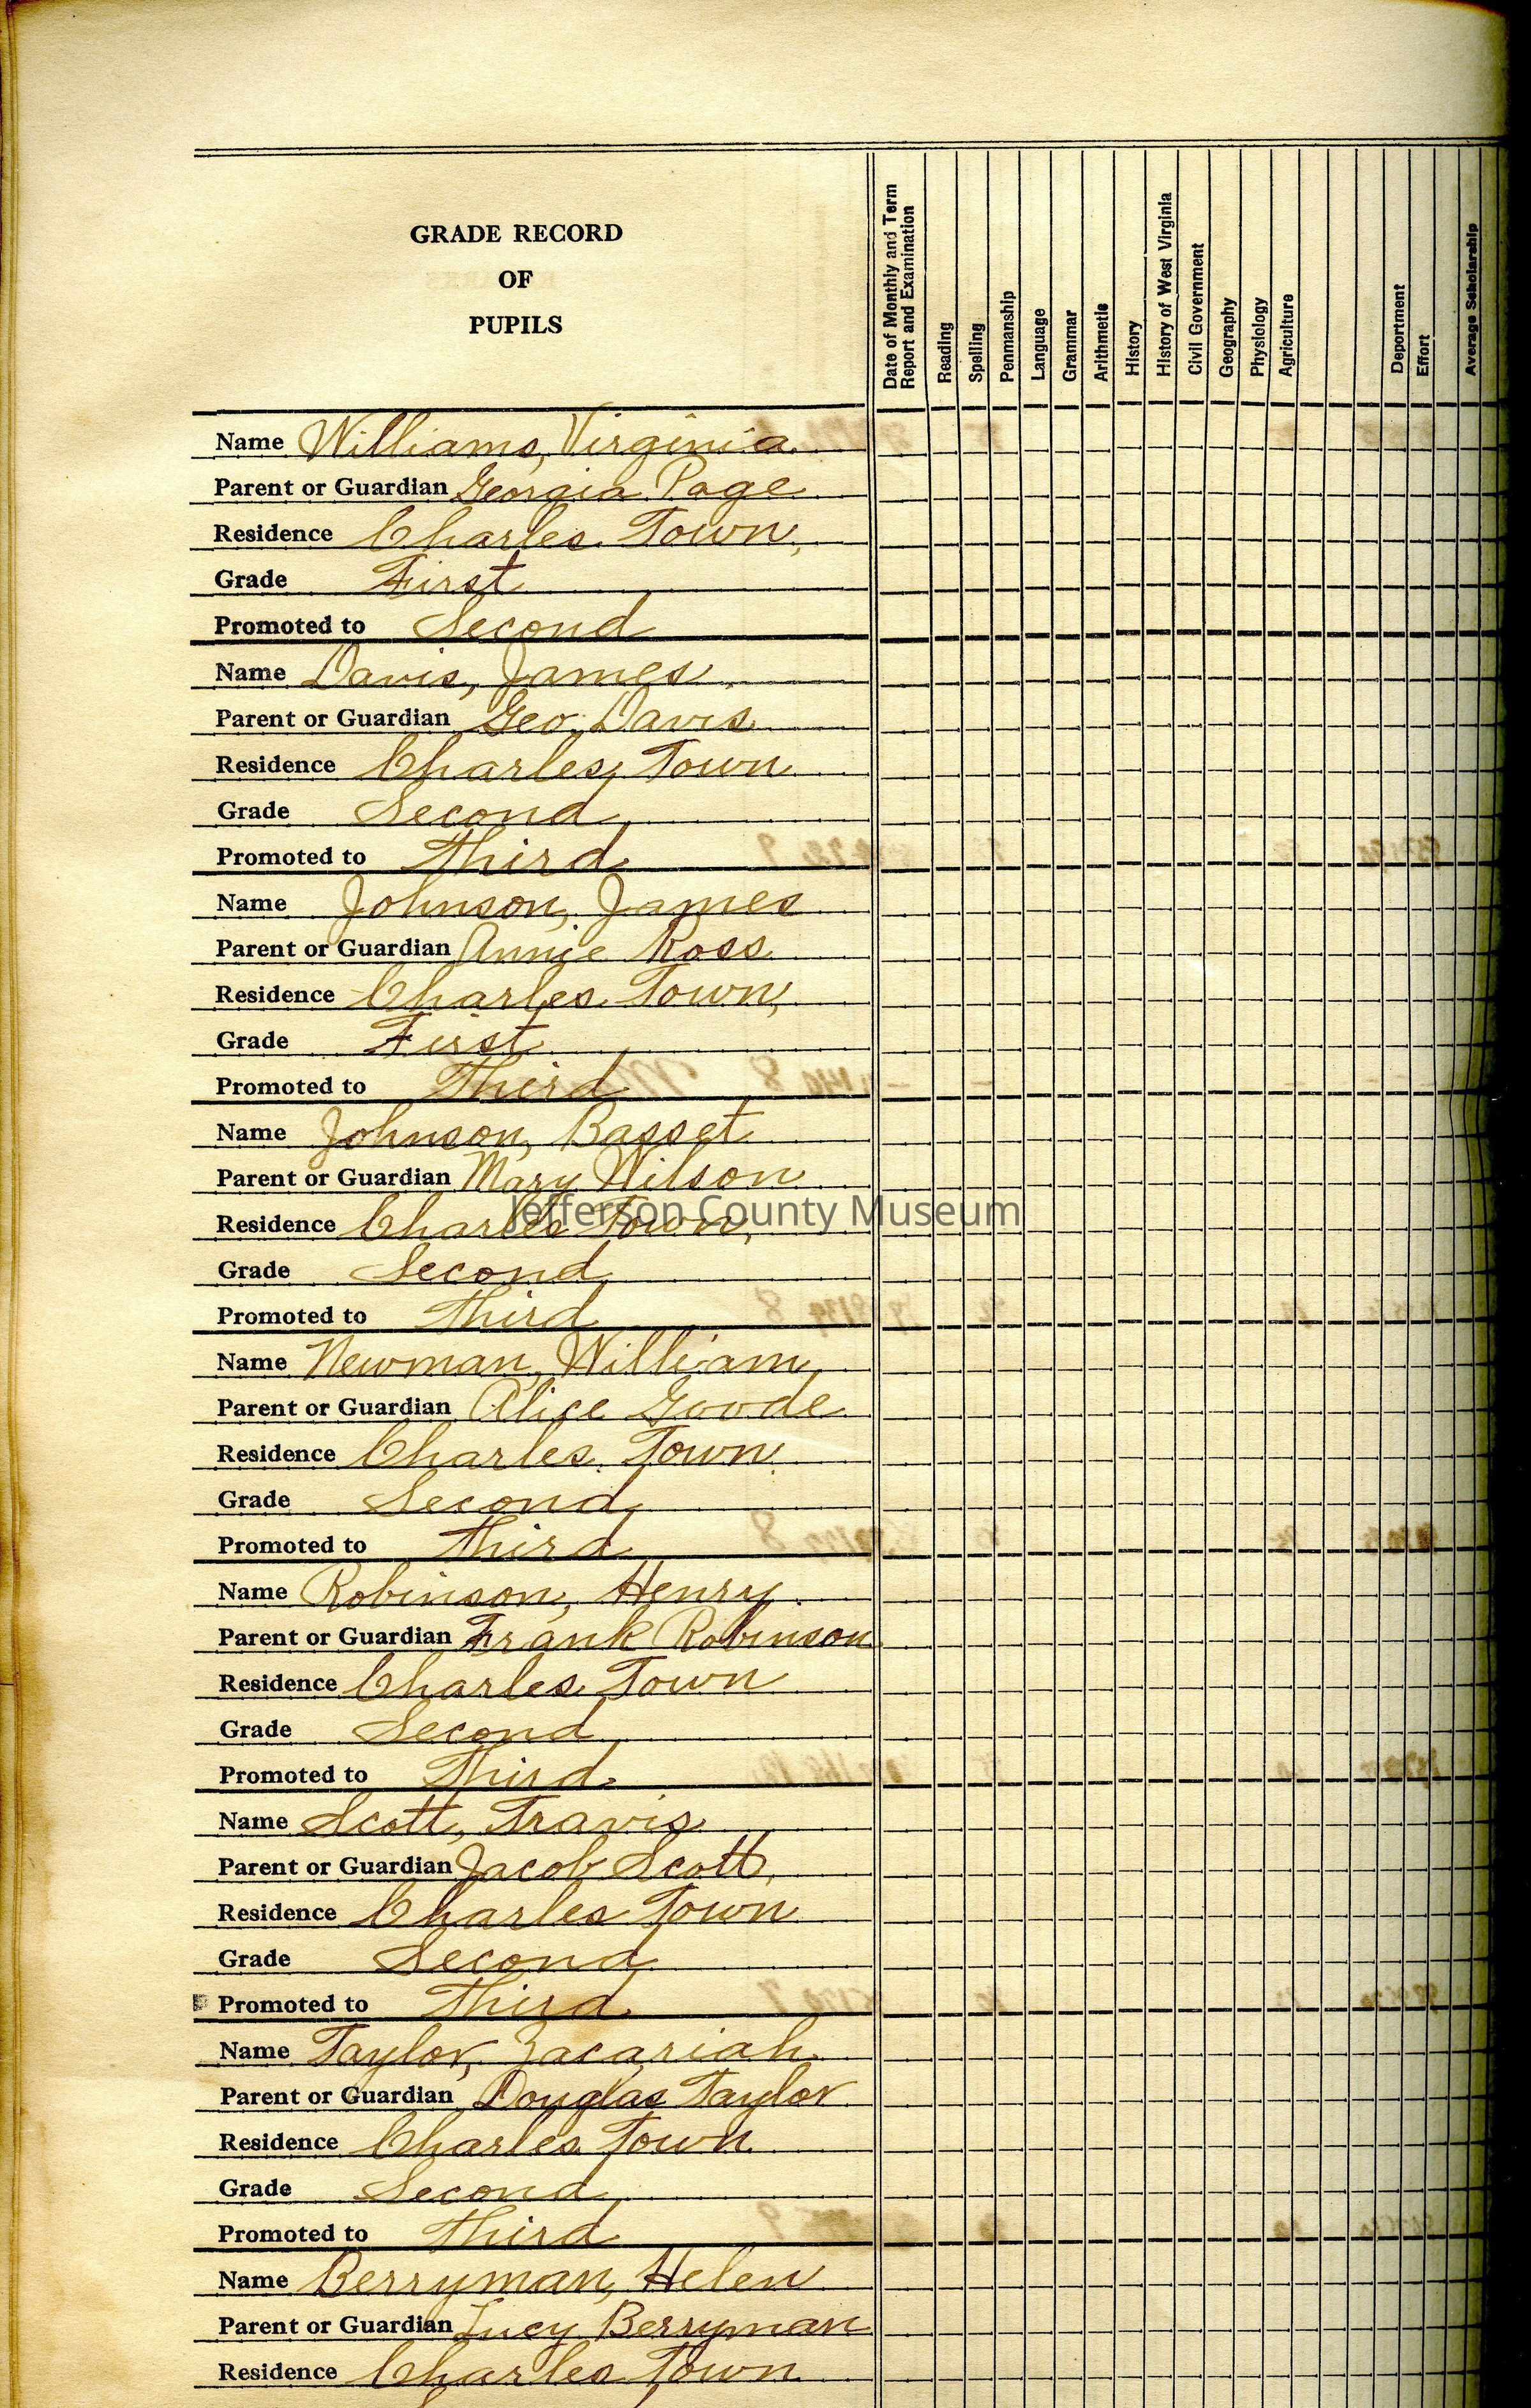 GRADE RECORD
OF
PUPILS
Date of Monthly and Term
Report and Examination
Reading
Spelling
Penmanship
Language
Grammar
Arithmetic
History
History of West Virginia
Civil Government
Geography
Physiology
Agriculture
Deportment
Effort
Average Scholarship
Name Williams, Virginia
Parent or Guardian Georgia Page
Residence Charles Town,
Grade First
Promoted to Second
Name Davis, James
Parent or Guardian Geo. Davis
Residence Charles Town
Grade Second
Promoted to Third
Name Johnson, James
Parent or Guardian Annie Ross
Residence Charles Town,
Grade First
Promoted to Third
Name Johnson, Basset
Parent or Guardian Mary Wilson
Residence Charles Town,
Jefferson County Museum
Grade Second
Promoted to Third
Name Newman, William
Parent or Guardian Alice Goode
Residence Charles Town
Grade Second
Promoted to Third
Name Robinson, Henry
Parent or Guardian Frank Robinson
Residence Charles Town
Grade Second
Promoted to Third
Name Scott, Travis
Parent or Guardian Jacob Scott
Residence Charles Town
Grade Second
Promoted to Third
Name Taylor, Zacariah
Parent or Guardian Douglas Taylor
Residence Charles Town
Grade Second
Promoted to Third
Name Berryman, Helen
Parent or Guardian Lucy Berryman
Residence Charles Town